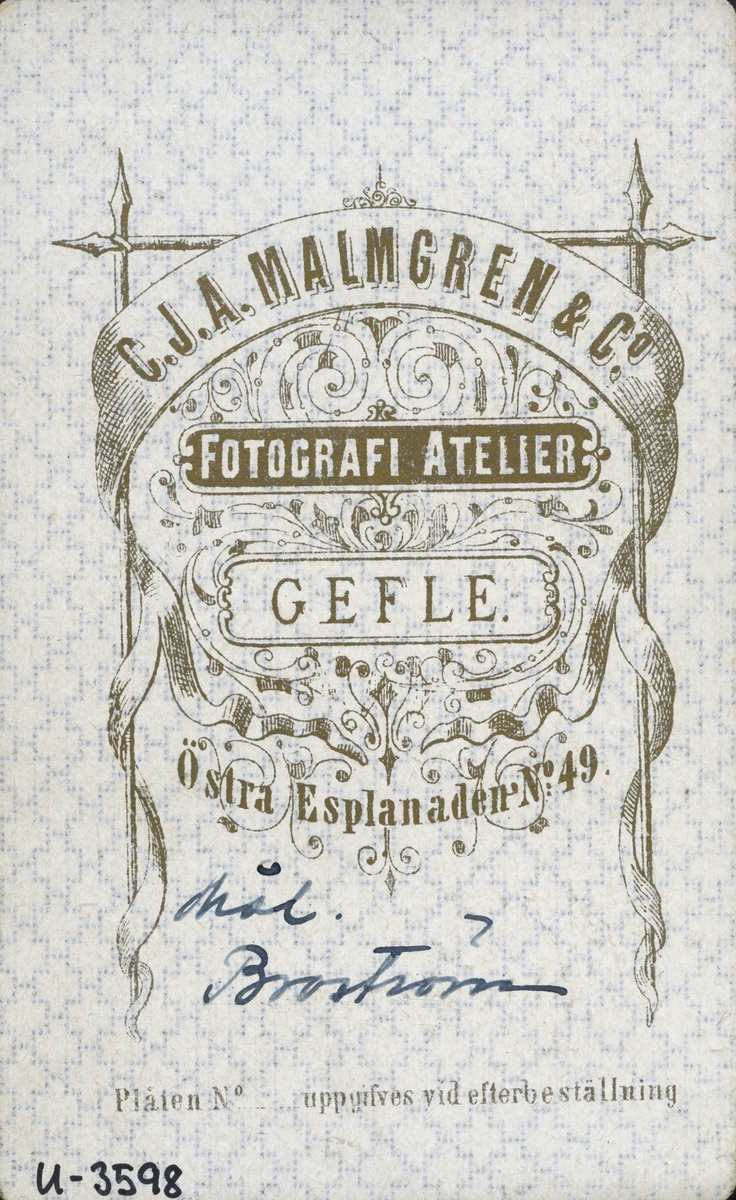 C.J.A. MALMGREN & Cº
FOTOGRAFI ATELIER
GEFLE.
Östra Esplanaden Nº 49.
Mål.
Broström
Plåten Nº uppgifves vid efterbeställning
U-3598